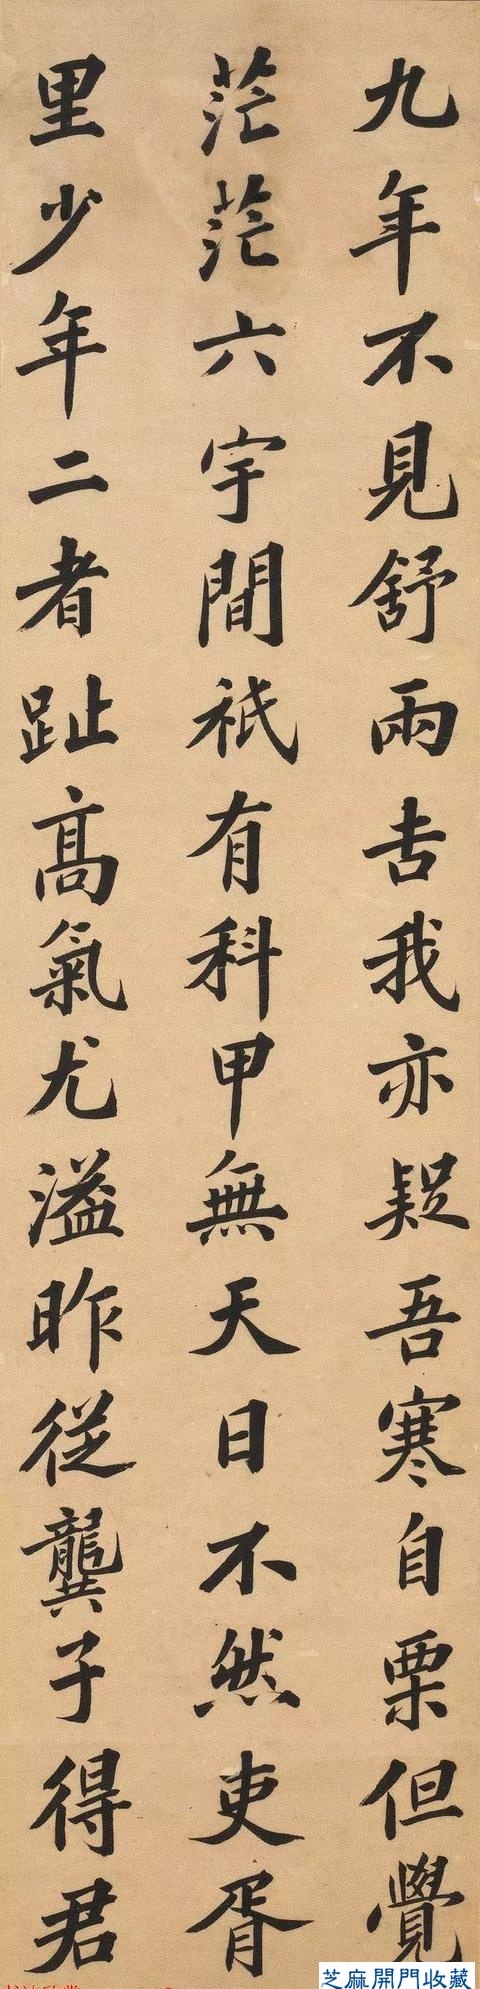 九年不見舒雨吉我亦疑吾寒自栗但覺
茫茫六宇間祇有科甲無天日不然吏胥
里少年二者趾高氣尤溢昨從龔子得君
芝麻開門收藏